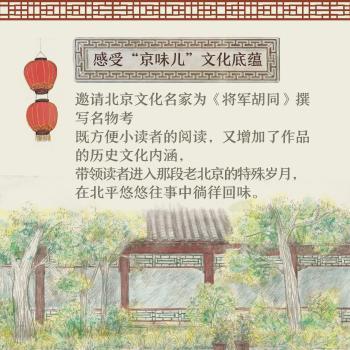 感受“京味儿”文化底蕴
邀请北京文化名家为《将军胡同》撰
写名物考
既方便小读者的阅读，又增加了作品
的历史文化内涵，
带领读者进入那段老北京的特殊岁月，
在北平悠悠往事中徜徉回味。